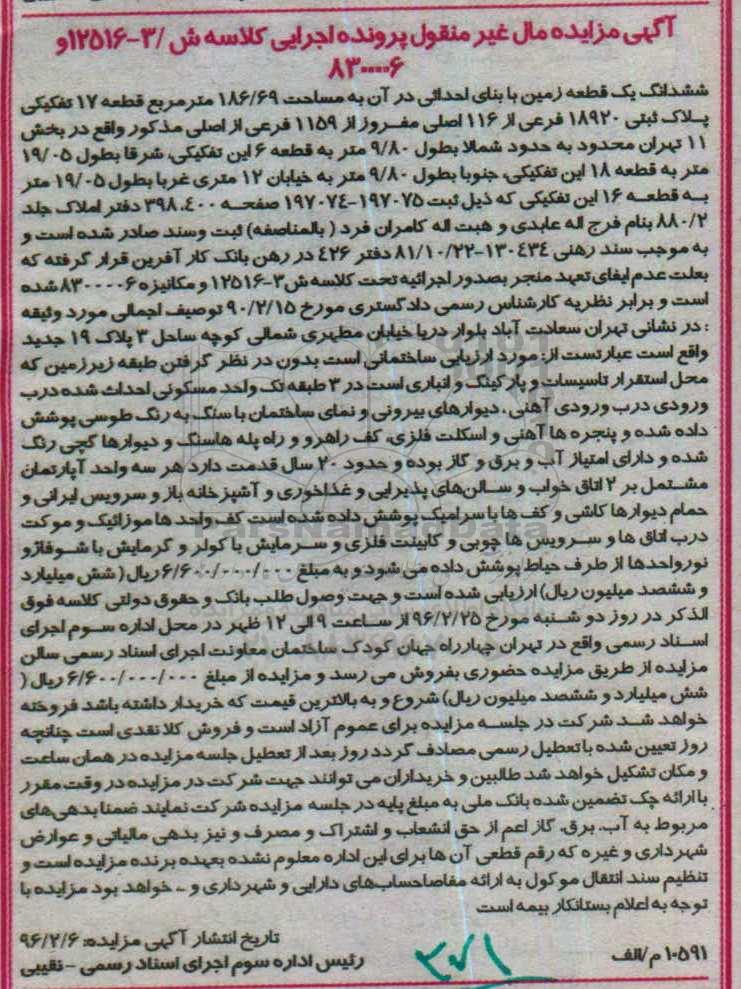 آگهی مزایده مال غیر منقول پرونده اجرایی کلاسه ش /۳-۱۲۵۱۶و
۸۳۰۰۰۰۶
ششدانگ یک قطعه زمین با بنای احداثی در آن به مساحت ۱۸۶/۶۹ مترمربع قطعه ۱۷ تفکیکی
پلاک ثبتی ۱۸۹۲۰ فرعی از ۱۱۶ اصلی مفروز از ۱۱۵۹ فرعی از اصلی مذکور واقع در بخش
۱۱ تهران محدود به حدود شمالا بطول ۹/۸۰ متر به قطعه ۶ این تفکیکی، شرقا بطول ۱۹/۰۵
متر به قطعه ۱۸ این تفکیکی، جنوبا بطول ۹/۸۰ متر به خیابان ۱۲ متری غربا بطول ۱۹/۰۵ متر
به قطعه ۱۶ این تفکیکی که ذیل ثبت ۱۹۷۰۷۵-۱۹۷۰۷۴ صفحه ۳۹۸،۴۰۰ دفتر املاک جلد
۸۸۰/۲ بنام فرج اله عابدی و هبت اله کامران فرد ( بالمناصفه) ثبت وسند صادر شده است و
به موجب سند رهنی ۱۳۰۴۳۴-۸۱/۱۰/۲۲ دفتر ۴۲۶ در رهن بانک کار آفرین قرار گرفته که
بعلت عدم ایفای تعهد منجر بصدور اجرائیه تحت کلاسه ش۳-۱۲۵۱۶ و مکانیزه ۸۳۰۰۰۰۶ شده
است و برابر نظریه کارشناس رسمی دادگستری مورخ ۹۰/۲/۱۵ توصیف اجمالی مورد وثیقه
: در نشانی تهران سعادت آباد بلوار دریا خیابان مطهری شمالی کوچه ساحل ۳ پلاک ۱۹ جدید
واقع است عبارتست از: مورد ارزیابی ساختمانی است بدون در نظر گرفتن طبقه زیرزمین که
محل استقرار تاسیسات و پارکینگ و انباری است در ۳ طبقه تک واحد مسکونی احداث شده درب
ورودی درب ورودی آهنی ، دیوارهای بیرونی و نمای ساختمان با سنگ به رنگ طوسی پوشش
داده شده و پنجره ها آهنی و اسکلت فلزی، کف راهرو و راه پله هاسنگ و دیوارها گچی رنگ
شده و دارای امتیاز آب و برق و گاز بوده و حدود ۲۰ سال قدمت دارد هر سه واحد آپارتمان
مشتمل بر ۲ اتاق خواب و سالن‌های پذیرایی و غذاخوری و آشپزخانه باز و سرویس ایرانی و
حمام دیوارها کاشی و کف ها با سرامیک پوشش داده شده است کف واحد ها موزائیک و موکت
درب اتاق ها و سرویس ها چوبی و کابینت فلزی و سرمایش با کولر و گرمایش با شوفاژو
نورواحدها از طرف حیاط پوشش داده می شود و به مبلغ ۶/۶۰۰/۰۰۰/۰۰۰ریال ( شش میلیارد
و ششصد میلیون ریال) ارزیابی شده است و جهت وصول طلب بانک و حقوق دولتی کلاسه فوق
الذکر در روز دو شنبه مورخ ۹۶/۲/۲۵ از ساعت ۹ الی ۱۲ ظهر در محل اداره سوم اجرای
اسناد رسمی واقع در تهران چهارراه جهان کودک ساختمان معاونت اجرای اسناد رسمی سالن
مزایده از طریق مزایده حضوری بفروش می رسد و مزایده از مبلغ ۶/۶۰۰/۰۰۰/۰۰۰ ریال (
شش میلیارد و ششصد میلیون ریال) شروع و به بالاترین قیمت که خریدار داشته باشد فروخته
خواهد شد شرکت در جلسه مزایده برای عموم آزاد است و فروش کلا نقدی است چنانچه
روز تعیین شده با تعطیل رسمی مصادف گردد روز بعد از تعطیل جلسه مزایده در همان ساعت
و مکان تشکیل خواهد شد طالبین و خریداران می توانند جهت شرکت در مزایده در وقت مقرر
با ارائه چک تضمین شده بانک ملی به مبلغ پایه در جلسه مزایده شرکت نمایند ضمنا بدهی‌های
مربوط به آب، برق، گاز اعم از حق انشعاب و اشتراک و مصرف و نیز بدهی مالیاتی و عوارض
شهرداری و غیره که رقم قطعی آن ها برای این اداره معلوم نشده بعهده برنده مزایده است و
تنظیم سند انتقال موکول به ارائه مفاصاحساب‌های دارایی و شهرداری و ... خواهد بود مزایده با
توجه به اعلام بستانکار بیمه است
تاریخ انتشار آگهی مزایده: ۹۶/۲/۶
۱۰۵۹۱ م/الف
رئیس اداره سوم اجرای اسناد رسمی - نقیبی
ParsNamadData